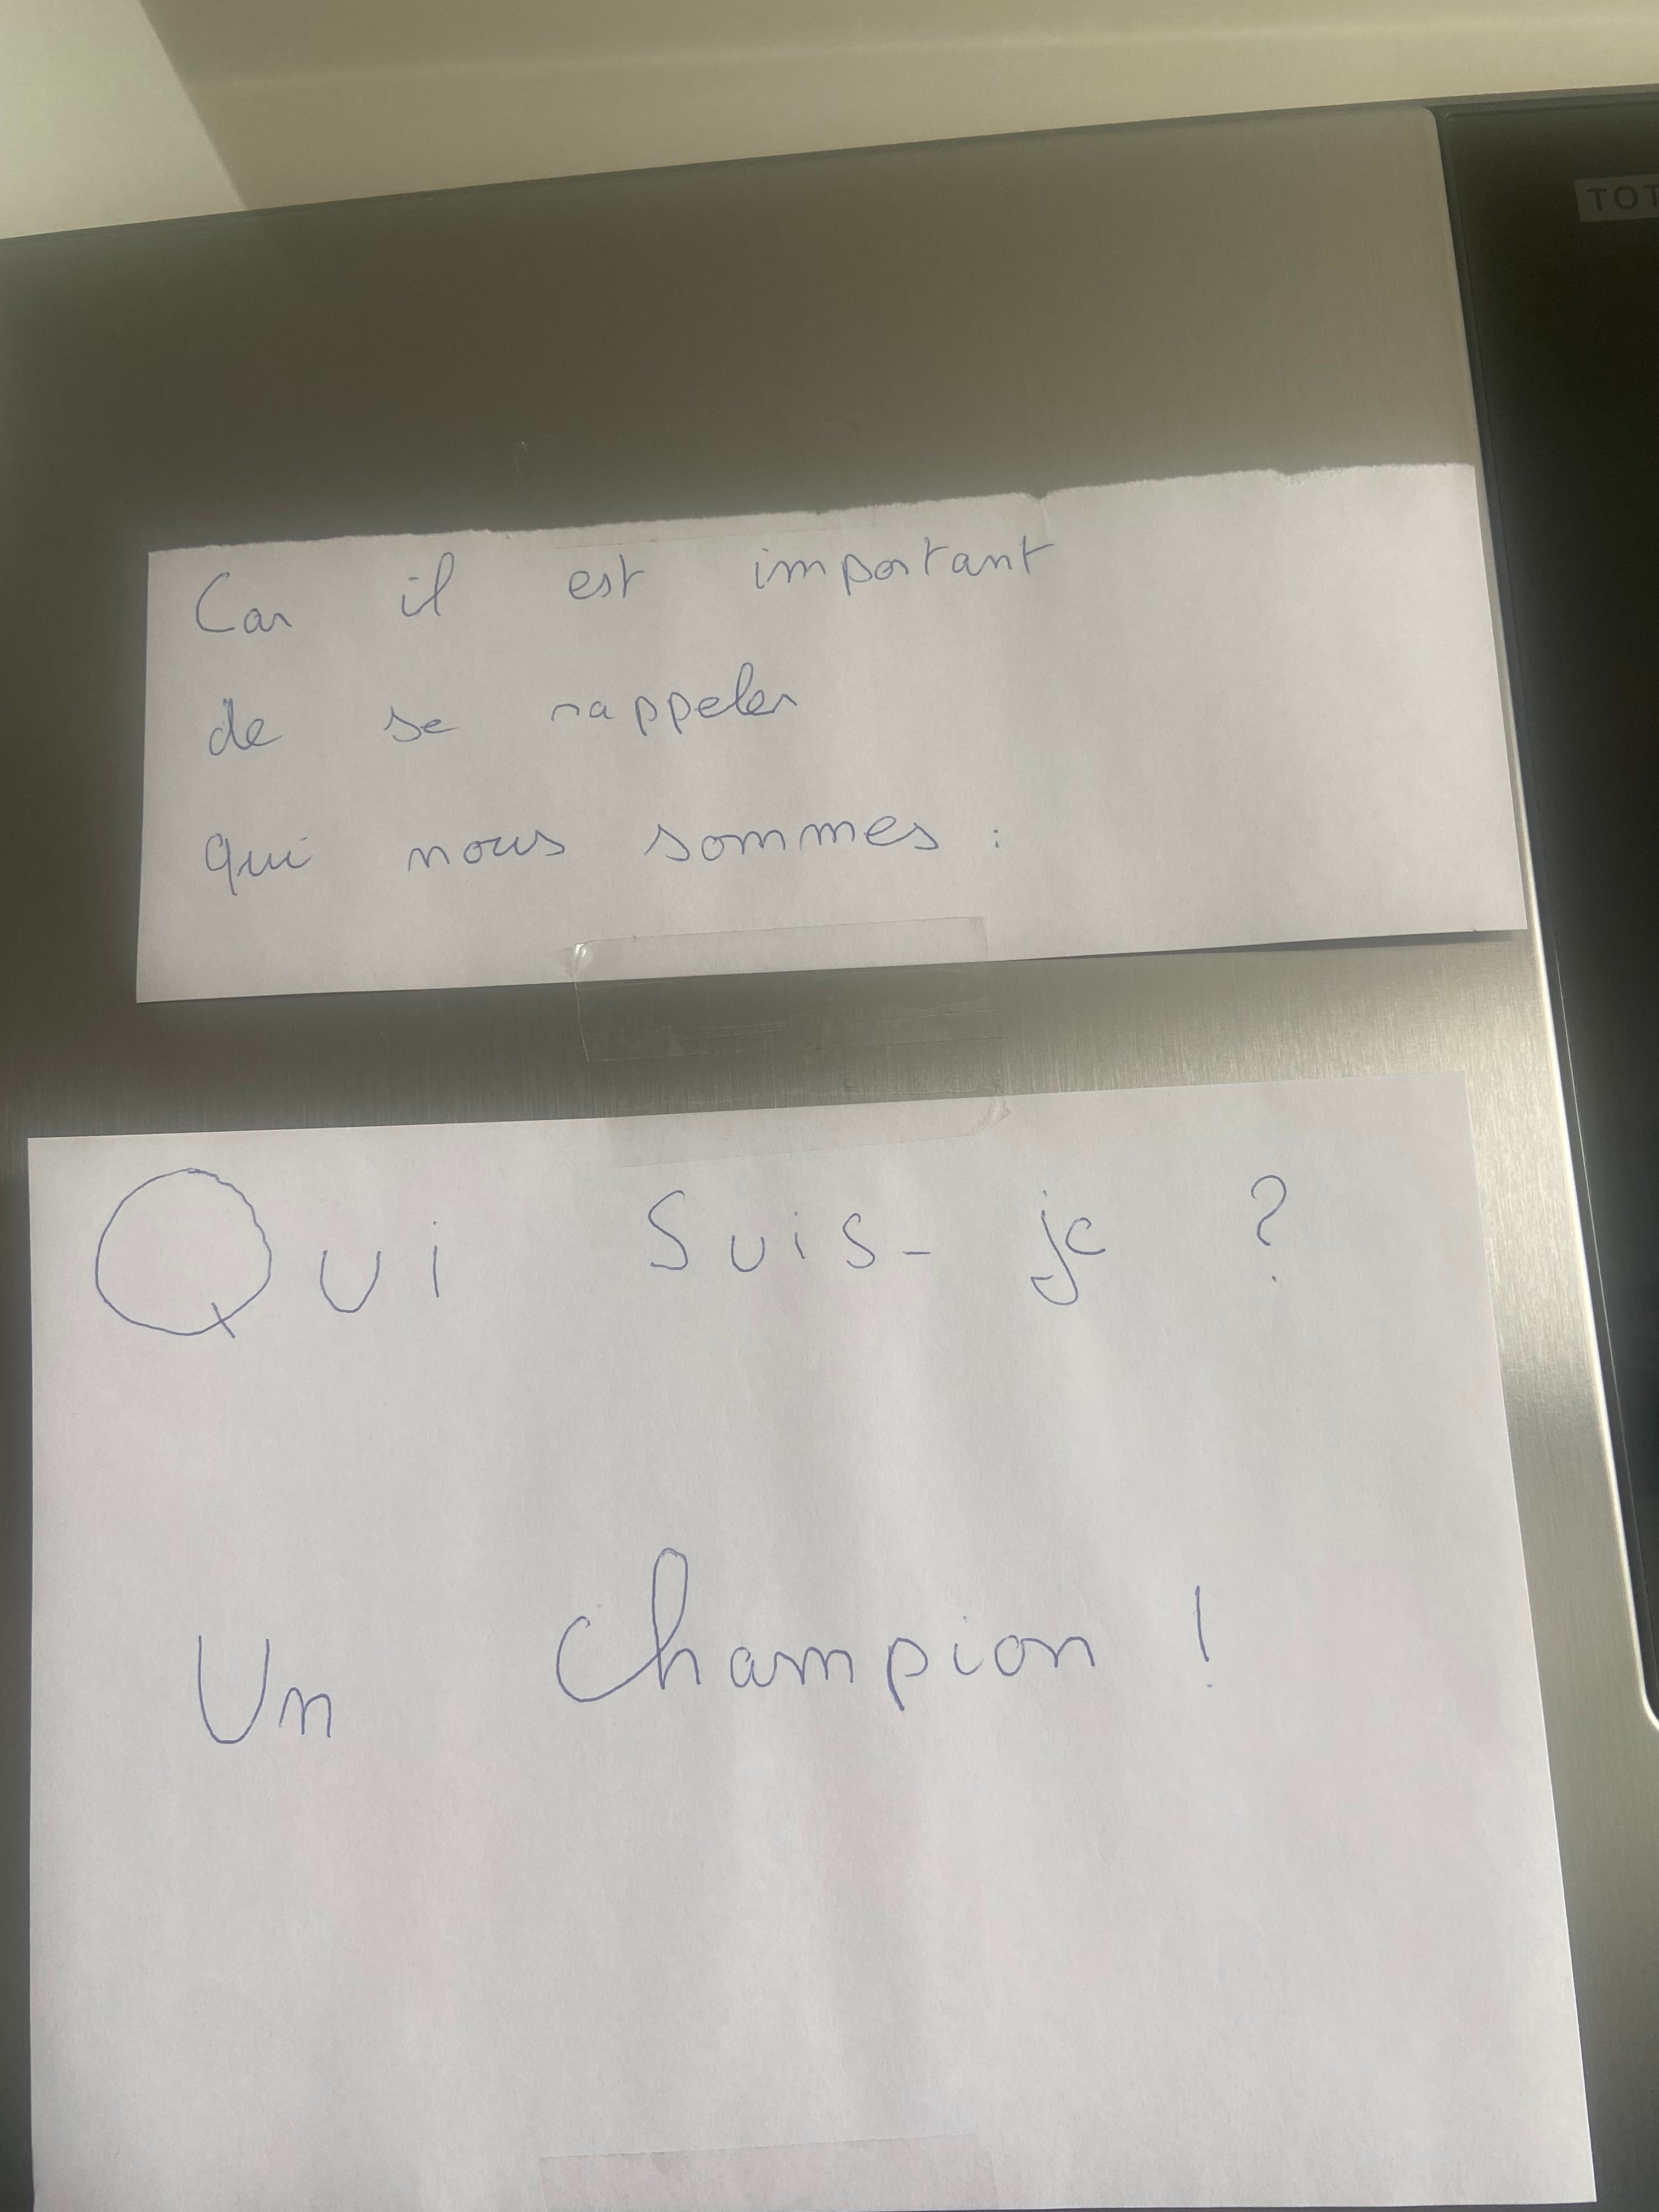 TOT
Car il est important
de se rappeler
qui nous sommes :
Qui suis-je ?
Un champion !